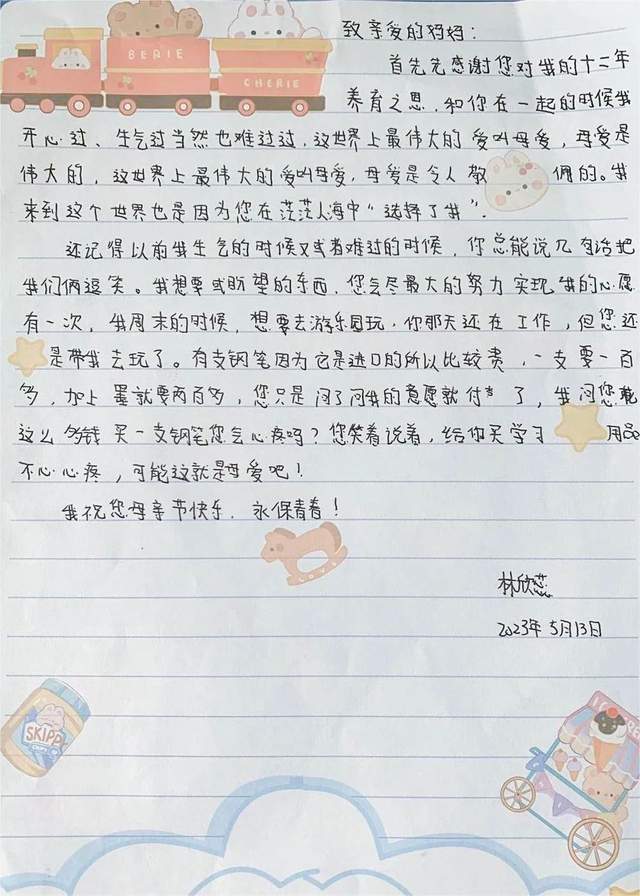 BERIE
CHERIE
致亲爱的妈妈：
首先先感谢您对我的十二年
养育之恩，和你在一起的时候我
开心过、生气过当然也难过过，这世界上最伟大的爱叫母爱，母爱是
伟大的，这世界上最伟大的爱叫母爱，母爱是令人敬佩的。我
来到这个世界也是因为您在茫茫人海中“选择了我”。
还记得以前我生气的时候又或者难过的时候，你总能说几句话把
我们俩逗笑。我想要或盼望的东西，您会尽最大的努力实现我的心愿
有一次，我周末的时候，想要去游乐园玩，你那天还在工作，但您还
是带我去玩了。有支钢笔因为它是进口的所以比较贵，一支要一百
多，加上墨就要两百多，您只是问了问我的意愿就付了，我问您花
这么多钱买一支钢笔您会心疼吗？您笑着说着，给你买学习用品
不心心疼，可能这就是母爱吧！
我祝您母亲节快乐，永保青春！
林欣蕊
2023年5月13日
SKIPP